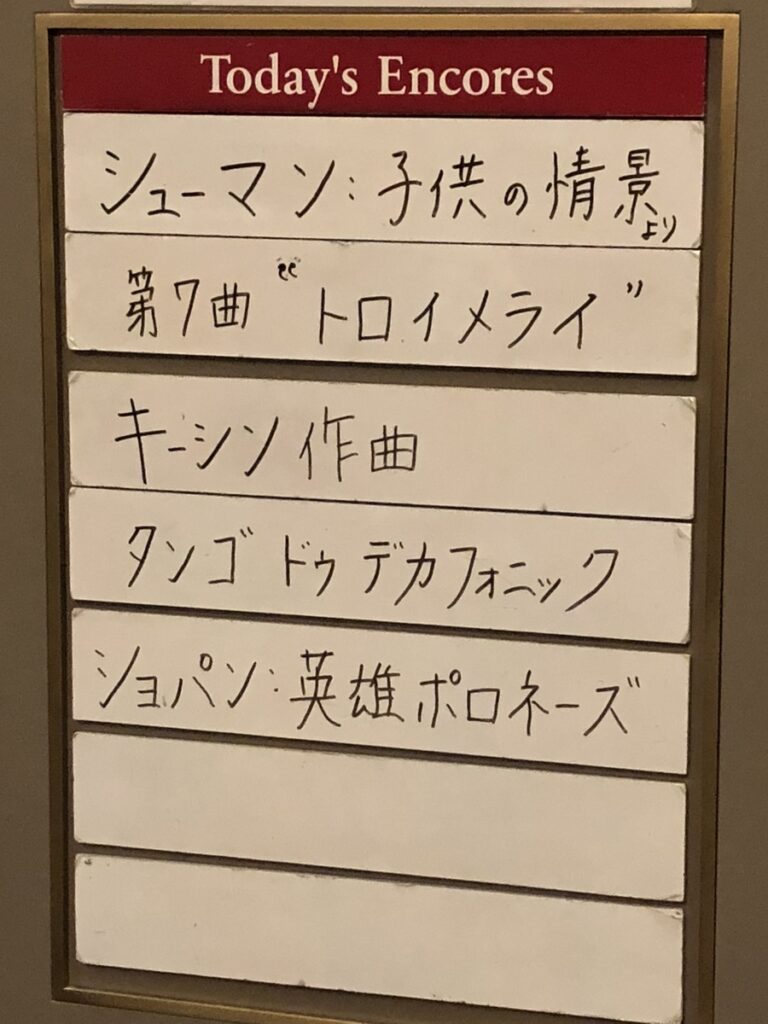 Today's Encores
シューマン：子供の情景より
第7曲 “トロイメライ”
キーシン作曲
タンゴ ドゥ デカフォニック
ショパン：英雄ポロネーズ